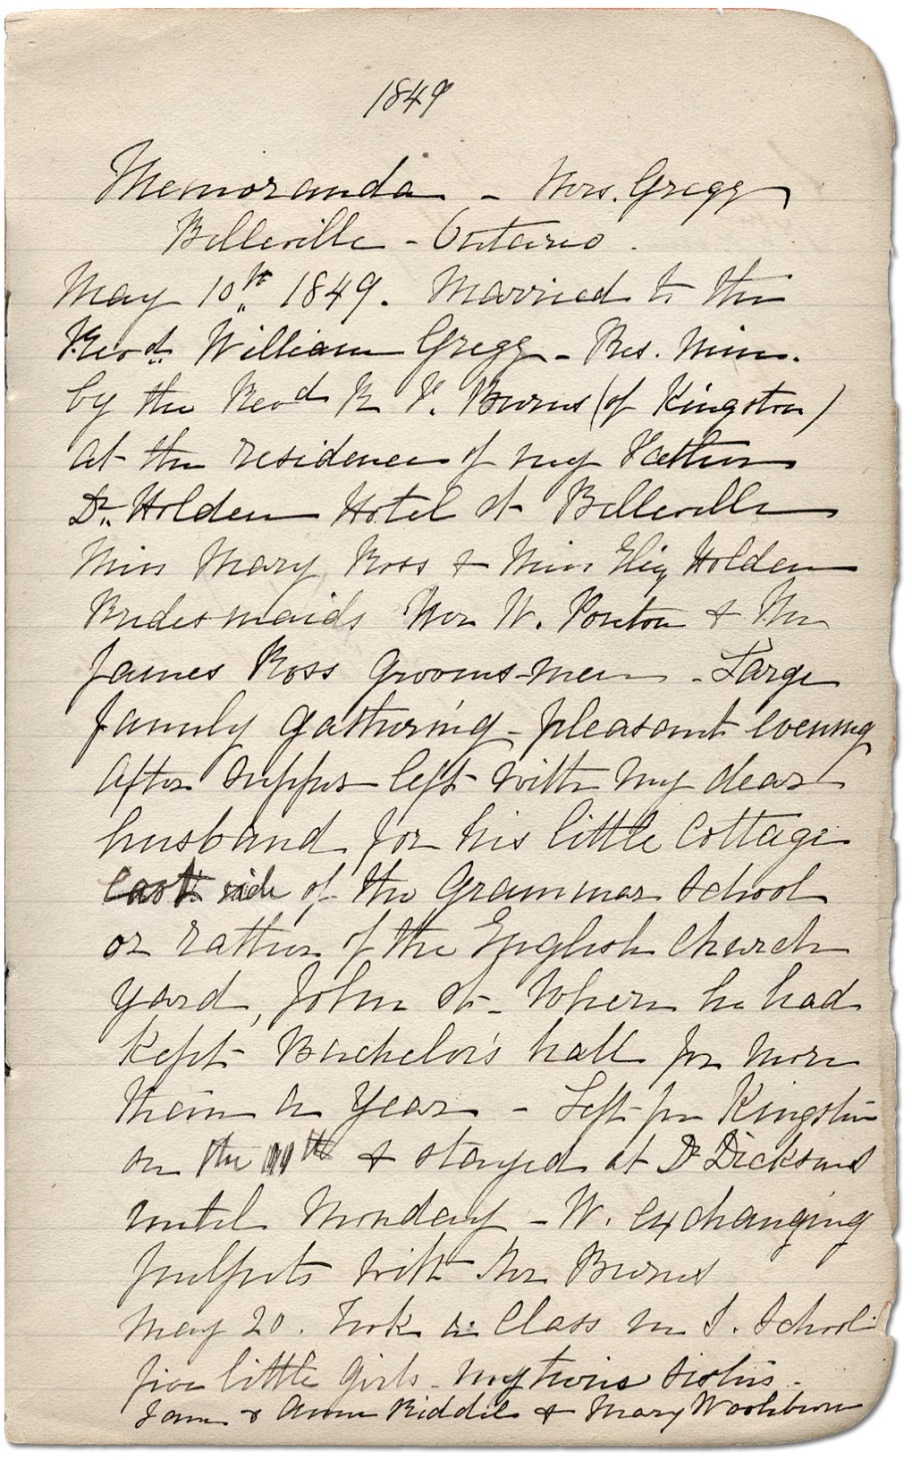 1849
Memoranda - Mrs. Gregg
Belleville - Ontario.
May 10th 1849. Married to the
Revd. William Gregg - Pres. Min.
by the Revd R F. Burns (of Kingston)
at the residence of my Father
Dr. Holden Hotel St Belleville
Miss Mary Ross & Miss Eliz Holden
Bridesmaids Mr W. Ponton & Mr
James Ross Grooms-men - Large
family gathering - pleasant evening
After supper left with my dear
husband for his little cottage
east side of the Grammar School
or rather of the English Church
yard, John St - Where he had
Kept Bachelor's hall for more
than a year - Left for Kingston
on the 11th & stayed at Dr Dicksons
until Monday - W. exchanging
pulpits with Mr Burns
May 20. Took a Class in S. School
five little girls - my twin sisters -
Jane & Anna Riddel & Mary Washburn